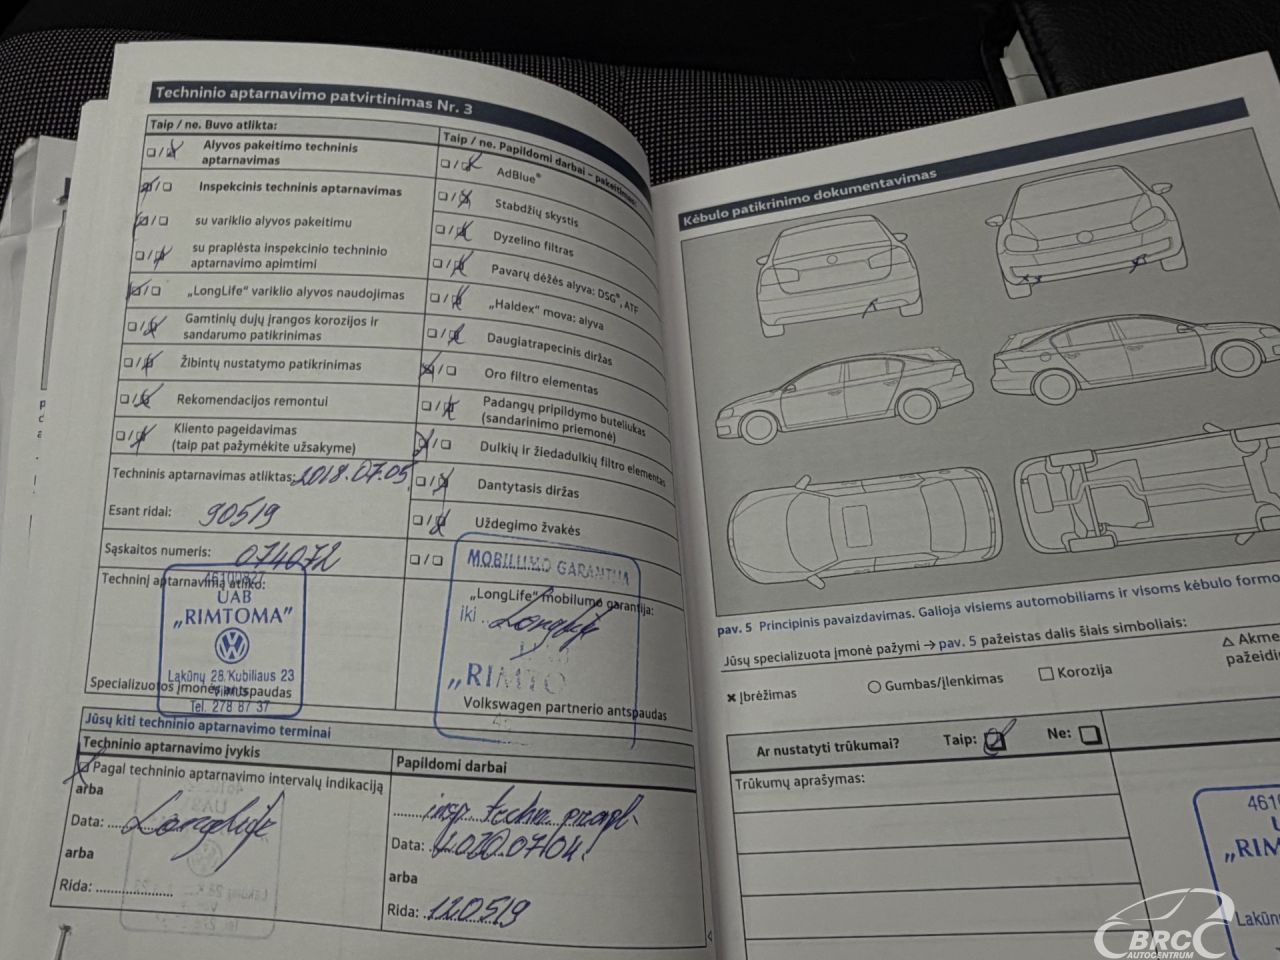 Techninio aptarnavimo patvirtinimas Nr. 3
Taip / ne. Buvo atlikta:
Alyvos pakeitimo techninis
aptarnavimas
Inspekcinis techninis aptarnavimas
su variklio alyvos pakeitimu
su praplėsta inspekcinio techninio
aptarnavimo apimtimi
„LongLife“ variklio alyvos naudojimas
Gamtinių dujų įrangos korozijos ir
sandarumo patikrinimas
Žibintų nustatymo patikrinimas
Rekomendacijos remontui
Kliento pageidavimas
(taip pat pažymėkite užsakyme)
Techninis aptarnavimas atliktas: 2018.07.05
Esant ridai: 90519
Sąskaitos numeris: 074072
Techninį aptarnavimą atliko:
UAB
„RIMTOMA”
Lakūnų 28/Kubiliaus 23
Vilnius
Tel. 278 87 37
Specializuotos įmonės antspaudas
Taip / ne. Papildomi darbai – pakeitimas:
AdBlue®
Stabdžių skystis
Dyzelino filtras
Pavarų dėžės alyva: DSG®, ATF
„Haldex“ mova: alyva
Daugiatrapecinis diržas
Oro filtro elementas
Padangų pripildymo buteliukas
(sandarinimo priemonė)
Dulkių ir žiedadulkių filtro elementas
Dantytasis diržas
Uždegimo žvakės
MOBILUMO GARANTIJA
„LongLife“ mobilumo garantija:
iki Longlife
„RIMTO
Volkswagen partnerio antspaudas
Jūsų kiti techninio aptarnavimo terminai
Techninio aptarnavimo įvykis
Pagal techninio aptarnavimo intervalų indikaciją
arba
Data: Longlife
arba
Rida:
Papildomi darbai
insp. techn. prapl.
Data: 2020.07.04!
arba
Rida: 120519
Kėbulo patikrinimo dokumentavimas
pav. 5 Principinis pavaizdavimas. Galioja visiems automobiliams ir visoms kėbulo formo
Jūsų specializuota įmonė pažymi → pav. 5 pažeistas dalis šiais simboliais:
Įbrėžimas
Gumbas/įlenkimas
Korozija
Akme
pažeidi
Ar nustatyti trūkumai? Taip: Ne:
Trūkumų aprašymas:
4610
„RIM
Lakūnų
BRC
AUTOCENTRUM